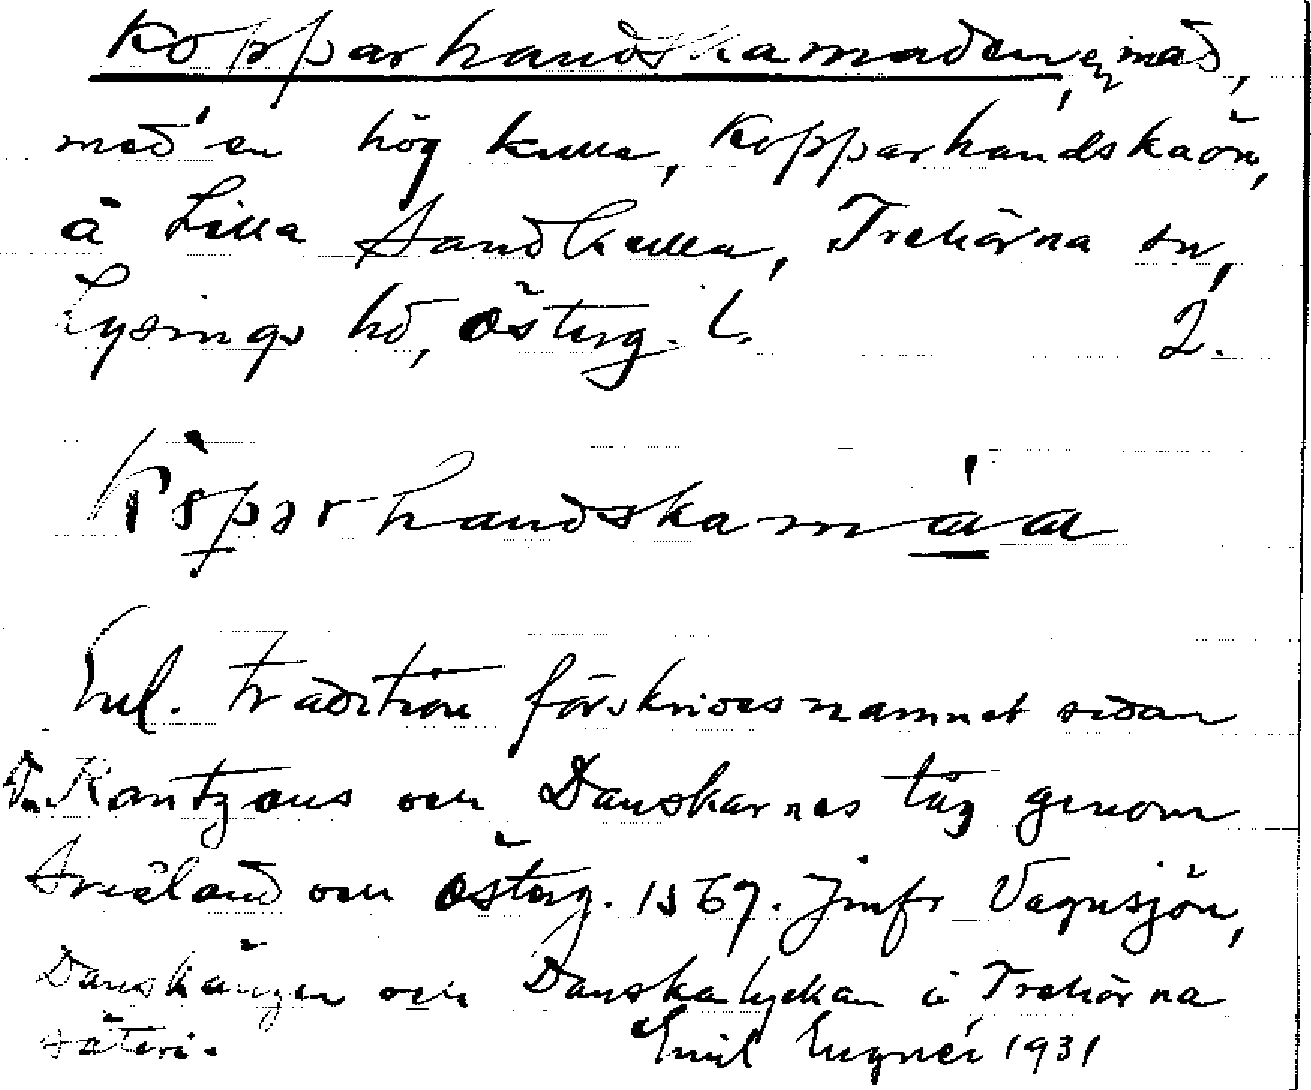 Kopparhandskamaden, en mad,
med en hög kulle, Kopparhandskaön,
å Lilla Sandkulla, Trehörna sn,
Lysings hd, Österg. l. 2.
Köparhandskamáa
Enl. tradition förskrives namnet sedan
Dn. Rantzaus och Danskarnes tåg genom
Småland och Österg. 1567. Jmfr Vagnsjön,
Danskängen och Danskalyckan å Trehörna
säteri. Emil
1931